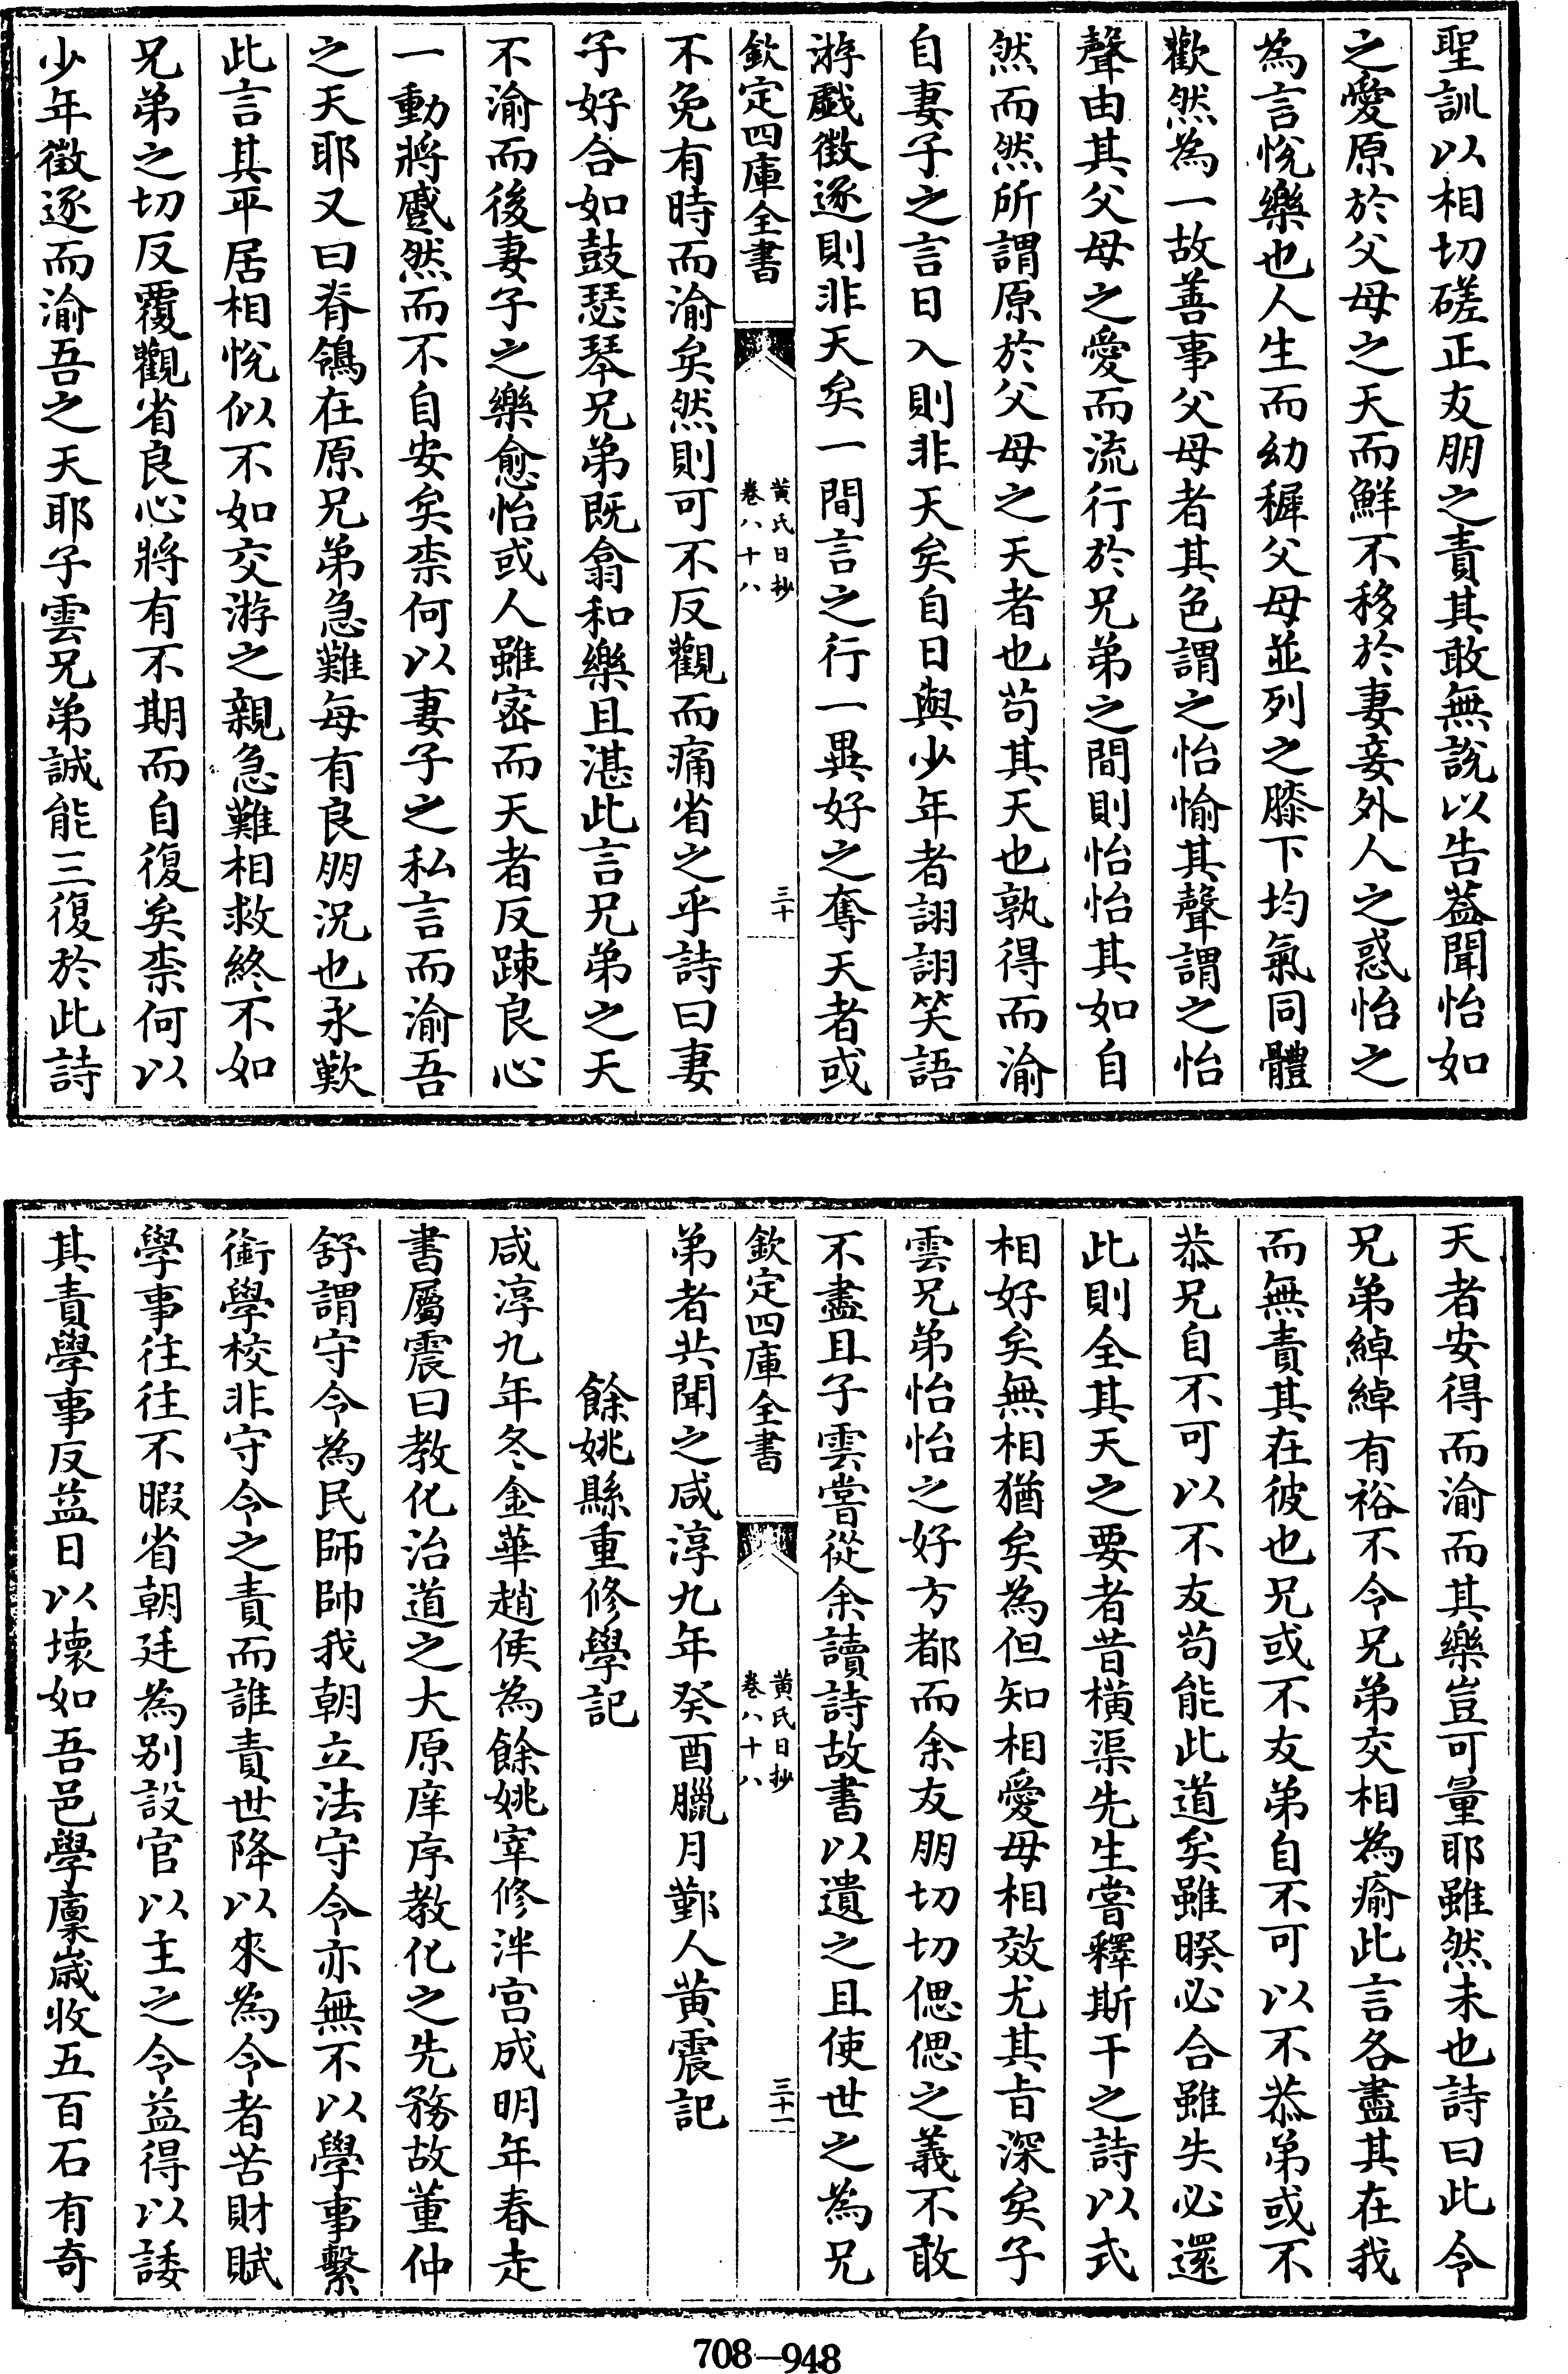 聖訓以相切磋正友朋之責其敢無說以告葢聞怡如
之愛原於父母之天而鮮不移於妻妾外人之惑怡之
為言悅樂也人生而幼穉父母並列之膝下均氣同體
歡然為一故善事父母者其色謂之怡愉其聲謂之怡
聲由其父母之愛而流行於兄弟之間則怡怡其如自
然而然所謂原於父母之天者也苟其天也孰得而渝
自妻子之言日入則非天矣自日與少年者詡詡笑語
游戲徵逐則非天矣一間言之行一異好之奪天者或
欽定四庫全書
黄氏日抄
卷八十八
三十
不免有時而渝矣然則可不反觀而痛省之乎詩曰妻
子好合如鼓瑟琴兄弟既翕和樂且湛此言兄弟之天
不渝而後妻子之樂愈怡或人雖密而天者反踈良心
一動將蹙然而不自安矣柰何以妻子之私言而渝吾
之天耶又曰脊鴒在原兄弟急難每有良朋況也永歎
此言其平居相悅似不如交游之親急難相救終不如
兄弟之切反覆觀省良心將有不期而自復矣柰何以
少年徵逐而渝吾之天耶子雲兄弟誠能三復於此詩
天者安得而渝而其樂豈可量耶雖然未也詩曰此令
兄弟綽綽有裕不令兄弟交相為瘉此言各盡其在我
而無責其在彼也兄或不友弟自不可以不恭弟或不
恭兄自不可以不友苟能此道矣雖暌必合雖失必還
此則全其天之要者昔橫渠先生嘗釋斯干之詩以式
相好矣無相猶矣為但知相愛毋相效尤其旨深矣子
雲兄弟怡怡之好方都而余友朋切切偲偲之義不敢
不盡且子雲嘗從余讀詩故書以遺之且使世之為兄
欽定四庫全書
黄氏日抄
卷八十八
三十一
弟者共聞之咸淳九年癸酉臘月鄞人黄震記
餘姚縣重修學記
咸淳九年冬金華趙侯為餘姚宰修泮宫成明年春走
書屬震曰教化治道之大原庠序教化之先務故董仲
舒謂守令為民師帥我朝立法守令亦無不以學事繫
銜學校非守令之責而誰責世降以來為令者苦財賦
學事往往不暇省朝廷為别設官以主之令益得以諉
其責學事反益日以壞如吾邑學廩嵗收五百石有奇
708—948